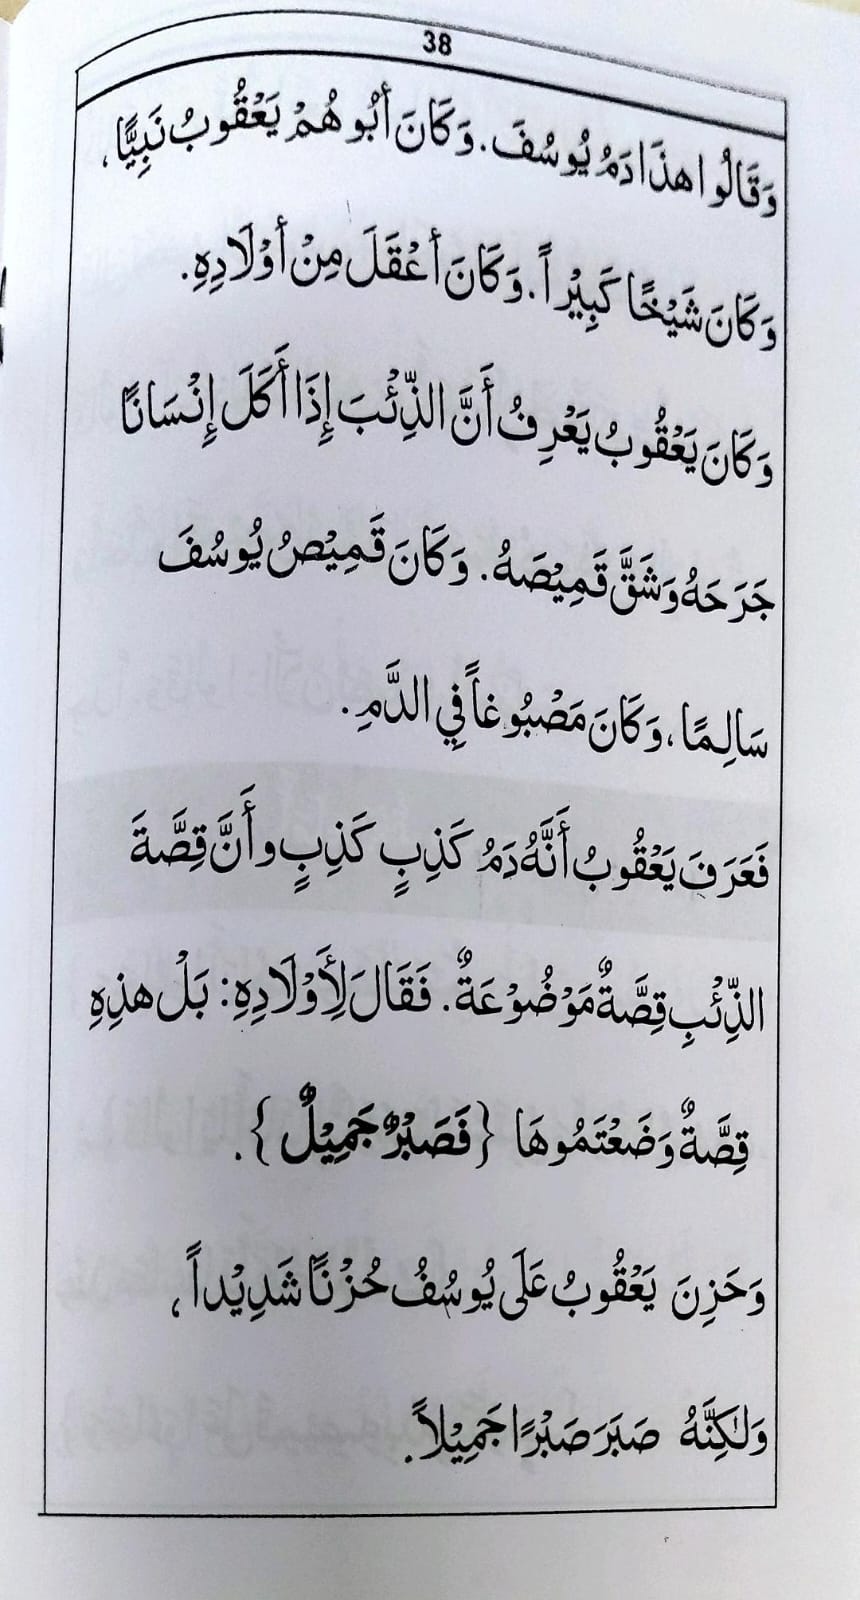 38
وَقَالُوا هذَا دَمُ يُوسُفَ. وَكَانَ أَبُوهُمْ يَعْقُوبُ نَبِيًّا،
وَكَانَ شَيْخًا كَبِيْراً. وَكَانَ أعْقَلَ مِنْ أوْلَادِهِ.
وَكَانَ يَعْقُوبُ يَعْرِفُ أَنَّ الذِّئْبَ إِذَا أَكَلَ إِنْسَانًا
جَرَحَهُ وَشَقَّ قَمِيْصَهُ. وَكَانَ قَمِيْصُ يُوسُفَ
سَالِمًا، وَكَانَ مَصْبُوغاً فِي الدَّمِ.
فَعَرَفَ يَعْقُوبُ أَنَّهُ دَمُ كَذِبٍ كَذِبٍ وأَنَّ قِصَّةَ
الذِّئْبِ قِصَّةٌ مَوْضُوْعَةٌ. فَقَالَ لِأَوْلَادِهِ: بَلْ هذِهِ
قِصَّةٌ وَضَعْتَمُوهَا {فَصَبْرٌ جَمِيْلٌ}.
وَحَزِنَ يَعْقُوبُ عَلَى يُوسُفُ حُزْنًا شَدِيْداً،
وَلٰكِنَّهُ صَبَرَ صَبْرًا جَمِيْلاً.